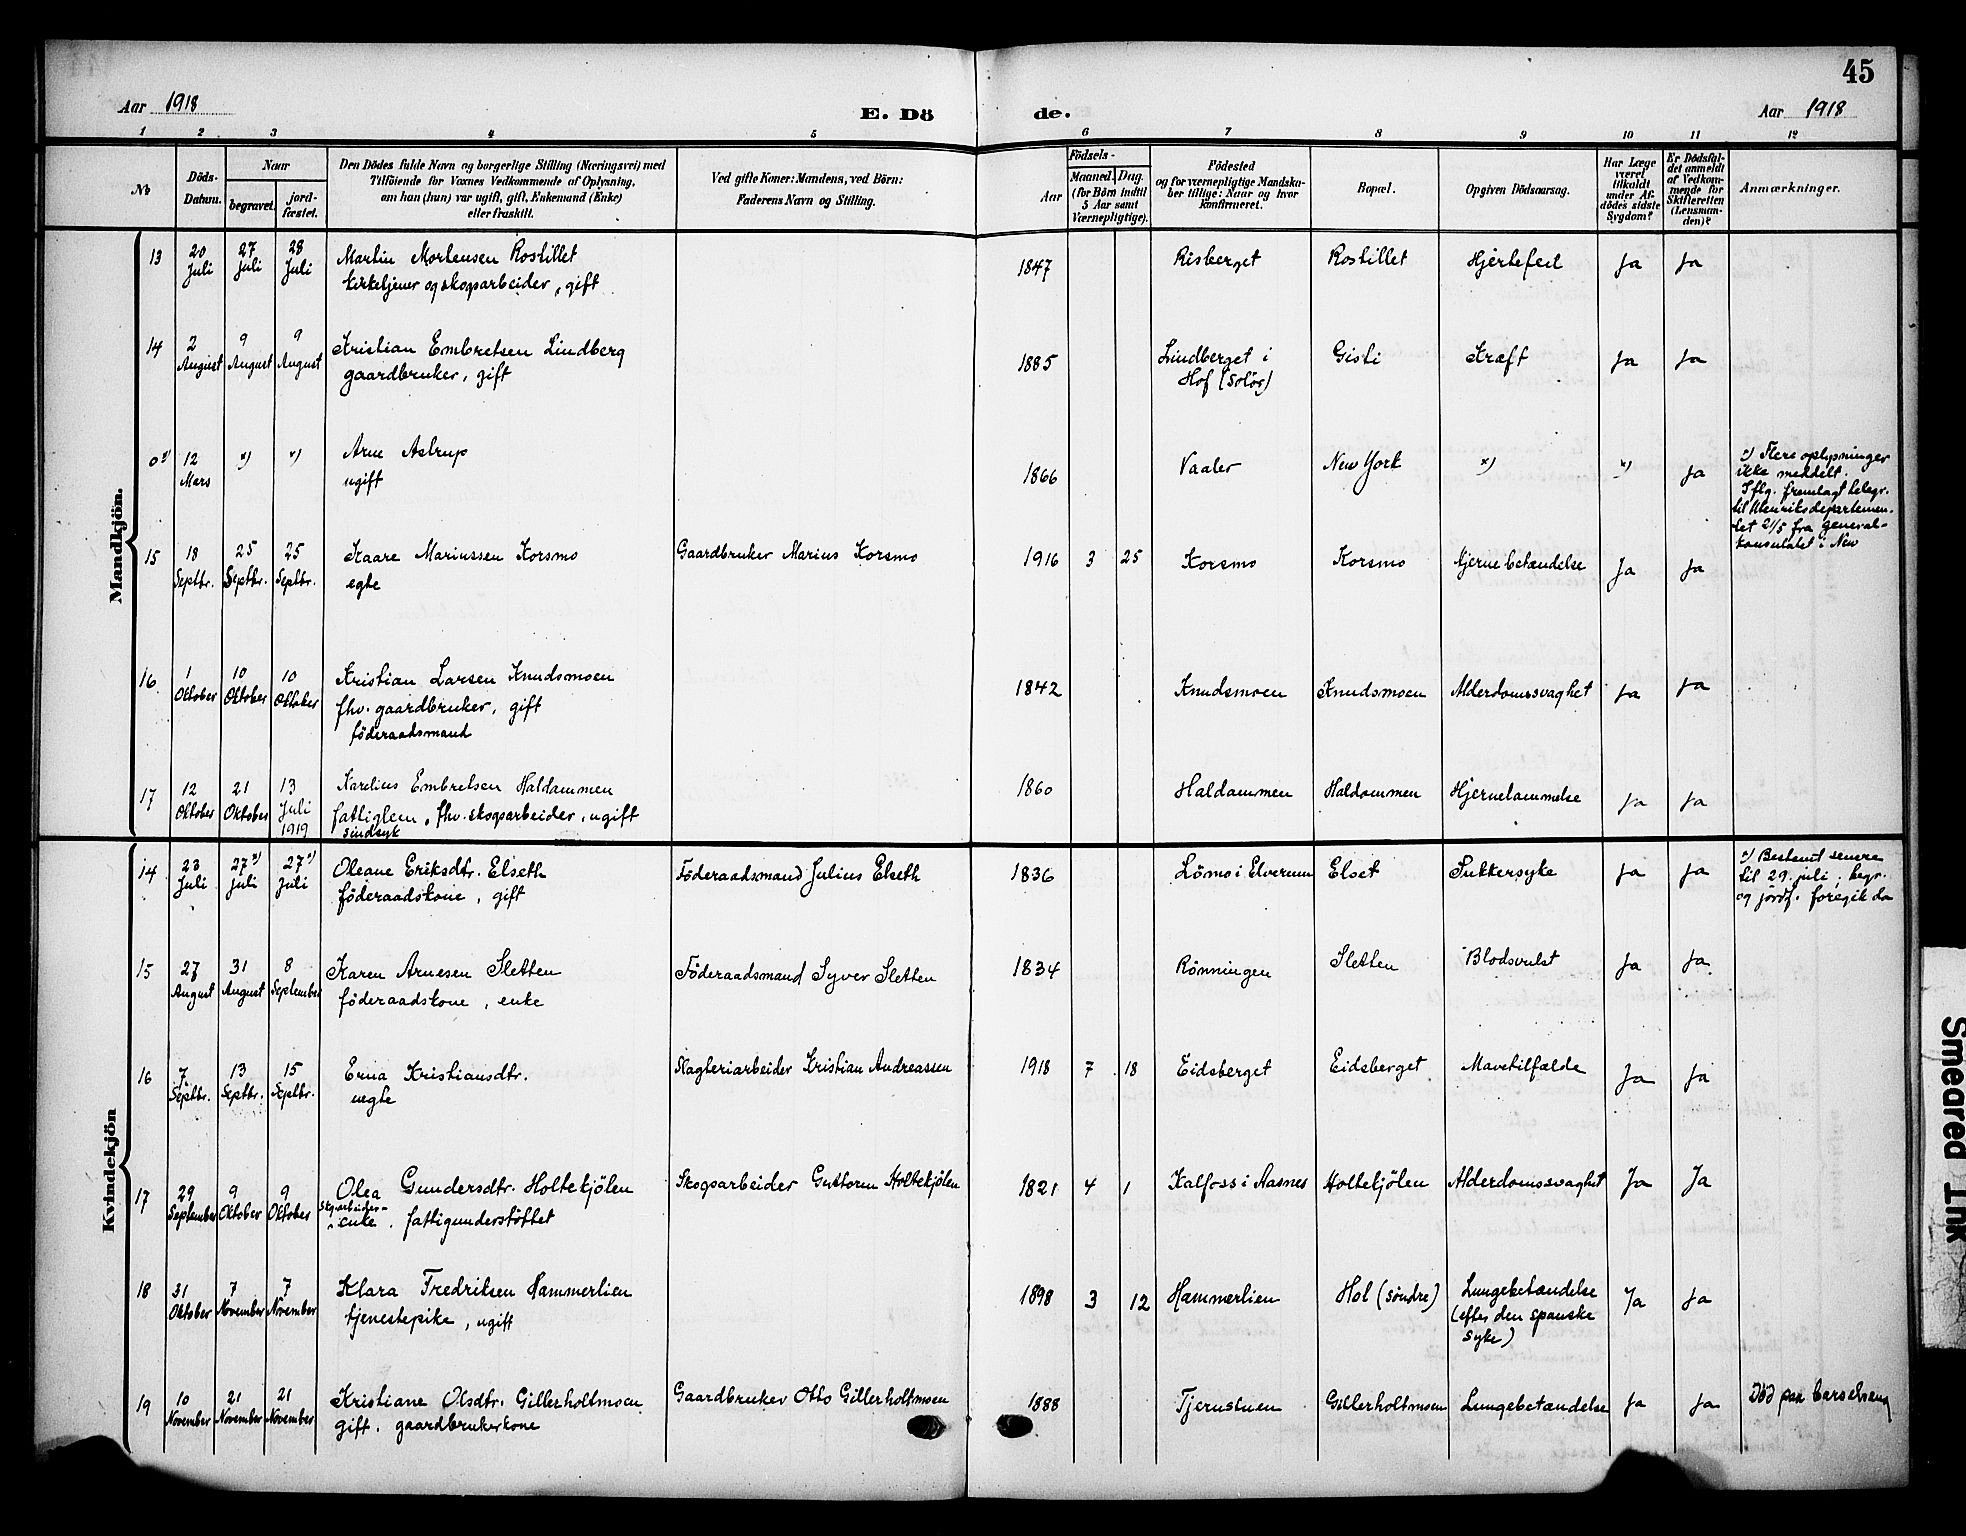 45
Aar 1918
E. Dö de.
Aar 1918
1 2 3 4 5 6 7 8 9 10 11 12
No
Döds-
Datum.
Naar
begravet.
jord-
fæstet.
Den Dödes fulde Navn og borgerlige Stilling (Næringsvei) med
Tilföiende for Voxnes Vedkommende af Oplysning,
om han (hun) var ugift, gift, Enkemand (Enke)
eller fraskilt.
Ved gifte Koner: Mandens, ved Börn:
Faderens Navn og Stilling.
Födsels-
Aar
Maaned. Dag.
(for Börn indtil
5 Aar samt
Værnepligtige).
Födested
og for værnepligtige Mandska-
ber tillige: Naar og hvor
konfirmeret.
Bopæl.
Opgiven Dödsaarsag.
Har Læge
været
tilkaldt
under Af-
dödes sidste
Sygdom?
Er Dödsfal-
det anmeldt
af Vedkom-
mende for
Skifteretten
(Lensman-
den)?
Anmærkninger.
Mandkjön.
13 20 Juli 27 Juli 28 Juli Martin Mortensen Rostillet 1847 Risberget Rostillet Hjertefeil Ja Ja
kirketjener og skogsarbeider, gift
14 2 August 9 August 9 August Kristian Embretsen Lindberg 1885 Lindberget i Gisti Kræft Ja Ja
gaardbruker, gift Hof (Solör)
0 x) 12 Mars x) x) Arne Astrup 1866 Vaaler New York x) x) Ja
ugift
x) Flere oplysninger
ikke meddelt.
Iflg. fremlagt telegr.
til Utenriksdepartemen-
tet 21/5 fra general-
konsulatet i New
15 18 Septbr. 25 Septbr. 25 Septbr. Kaare Mariussen Korsmo Gaardbruker Marius Korsmo 1916 3 25 Korsmo Korsmo Hjernebetændelse Ja Ja
egte
16 1 Oktober 10 Oktober 10 Oktober Kristian Larsen Knudsmoen 1842 Knudsmoen Knudsmoen Alderdomssvaghet Ja Ja
fhv. gaardbruker, gift
föderaadsmand
17 12 Oktober 21 Oktober 13 Juli 1919 Karelius Embretsen Haldammen 1860 Haldammen Haldammen Hjernelammelse Ja Ja
fattiglem, fhv. skogsarbeider, ugift
sindsyk
Kvindekjön
14 23 Juli 27 x) Juli 27 x) Juli Oleane Eriksdtr. Elseth Föderaadsmand Julius Elseth 1836 Lömo i Elverum Elset Sukkersyke Ja Ja
föderaadskone, gift
x) Bestemt senere
til 29. juli, begr.
og jordf. foregik da
15 27 August 31 August 8 September Karen Arnesen Sletten Föderaadsmand Syver Sletten 1834 Rönningen Sletten Blodsvulst Ja Ja
föderaadskone, enke
16 7 Septbr. 13 Septbr. 15 Septbr. Erna Kristiansdtr. Slagteriarbeider Kristian Andreassen 1918 7 18 Eidsberget Eidsberget Mavetilfælde Ja Ja
uegte
17 29 September 9 Oktober 9 Oktober Olea Gundersdtr. Holtekjölen Skogsarbeider Guttorm Holtekjölen 1821 4 1 Kalfoss i Aasnes Holtekjölen Alderdomssvaghet Ja Ja
enke, fattigunderstöttet
18 31 Oktober 7 November 7 November Klara Fredriksen Hammerlien 1898 3 12 Hammerlien Hol (söndre) Lungebetændelse Ja Ja
tjenestepike, ugift (efter den spanske
syke)
19 10 November 21 November 21 November Kristiane Olsdtr. Gillerholtmoen Gaardbruker Otto Gillerholtmoen 1888 Tjernstuen Gillerholtmoen Lungebetændelse Ja Ja Död paa barselseng
gift, gaardbrukerkone
Smeared Ink